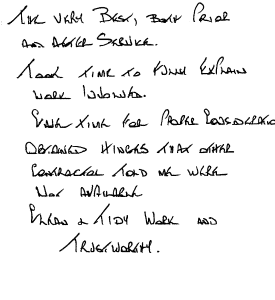 THE VERY BEST, BOTH PRIOR
AND AFTER SERVICE.
TOOK TIME TO FULLY EXPLAIN
WORK INVOLVED.
EVEN TIME FOR PROPER CONSIDERATIO
OBTAINED HINGES THAT OTHER
CONTRACTOR TOLD ME WERE
NOT AVAILABLE
CLEAN & TIDY WORK AND
TRUSTWORTHY.